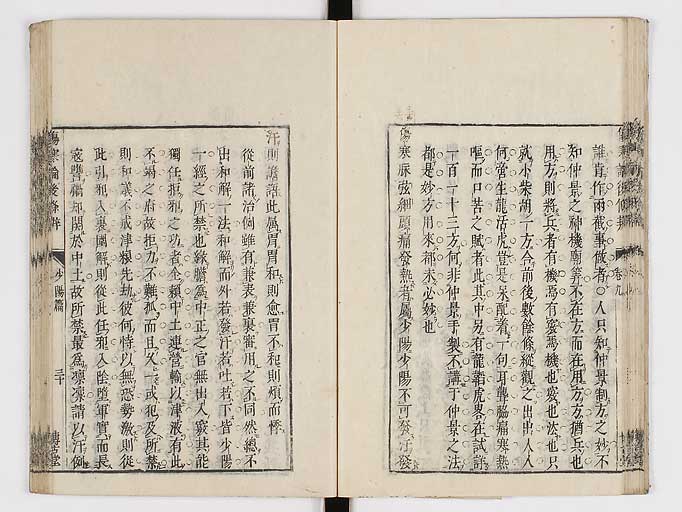 誰肯作兩截事做者○人只知仲景制方之妙不
知仲景之神機廟筭不在方而在用方方猶兵也
用方則將兵者有機焉有竅焉機也竅也法也只
就小柴胡一方今前後數餘條縱觀之出出入入
何嘗生龍活虎豈是呆配着一句耳聾脇痛寒熱
嘔而口苦之賦者此其中另有龍韜虎畧在試許
一百一十三方何非仲景手製不講于仲景之法
都是妙方用來都未必妙也
傷寒脉弦細頭痛發熱者屬少陽少陽不可發汗發
汗則譫語此屬胃胃和則愈胃不和則煩而悸
從前諸治倘雖有兼表兼裏審用之不同然總不
出和解一法和解而外若發汗若吐若下皆少陽
一經之所禁也緣膽為中正之官無出入竅其能
獨任拒犯之功者全賴中土連營輸以津液有此
不竭之府故拒力不難孤而且久一或犯及所禁
則和議不戒津液先劫彼何恃以無恐勢激則從
此引犯入裏圍解則從此任犯入陰墮軍實而長
寇讐禍却關於中土故所禁最為凜凜請以汗例
傷寒論後條辨
少陽篇
三十
卷九